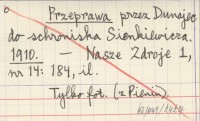 Przeprawa przez Dunajec
do schroniska Sienkiewicza.
1910. — Nasze Zdroje 1,
nr 14: 184, il.
Tylko fot. (z Pienin).